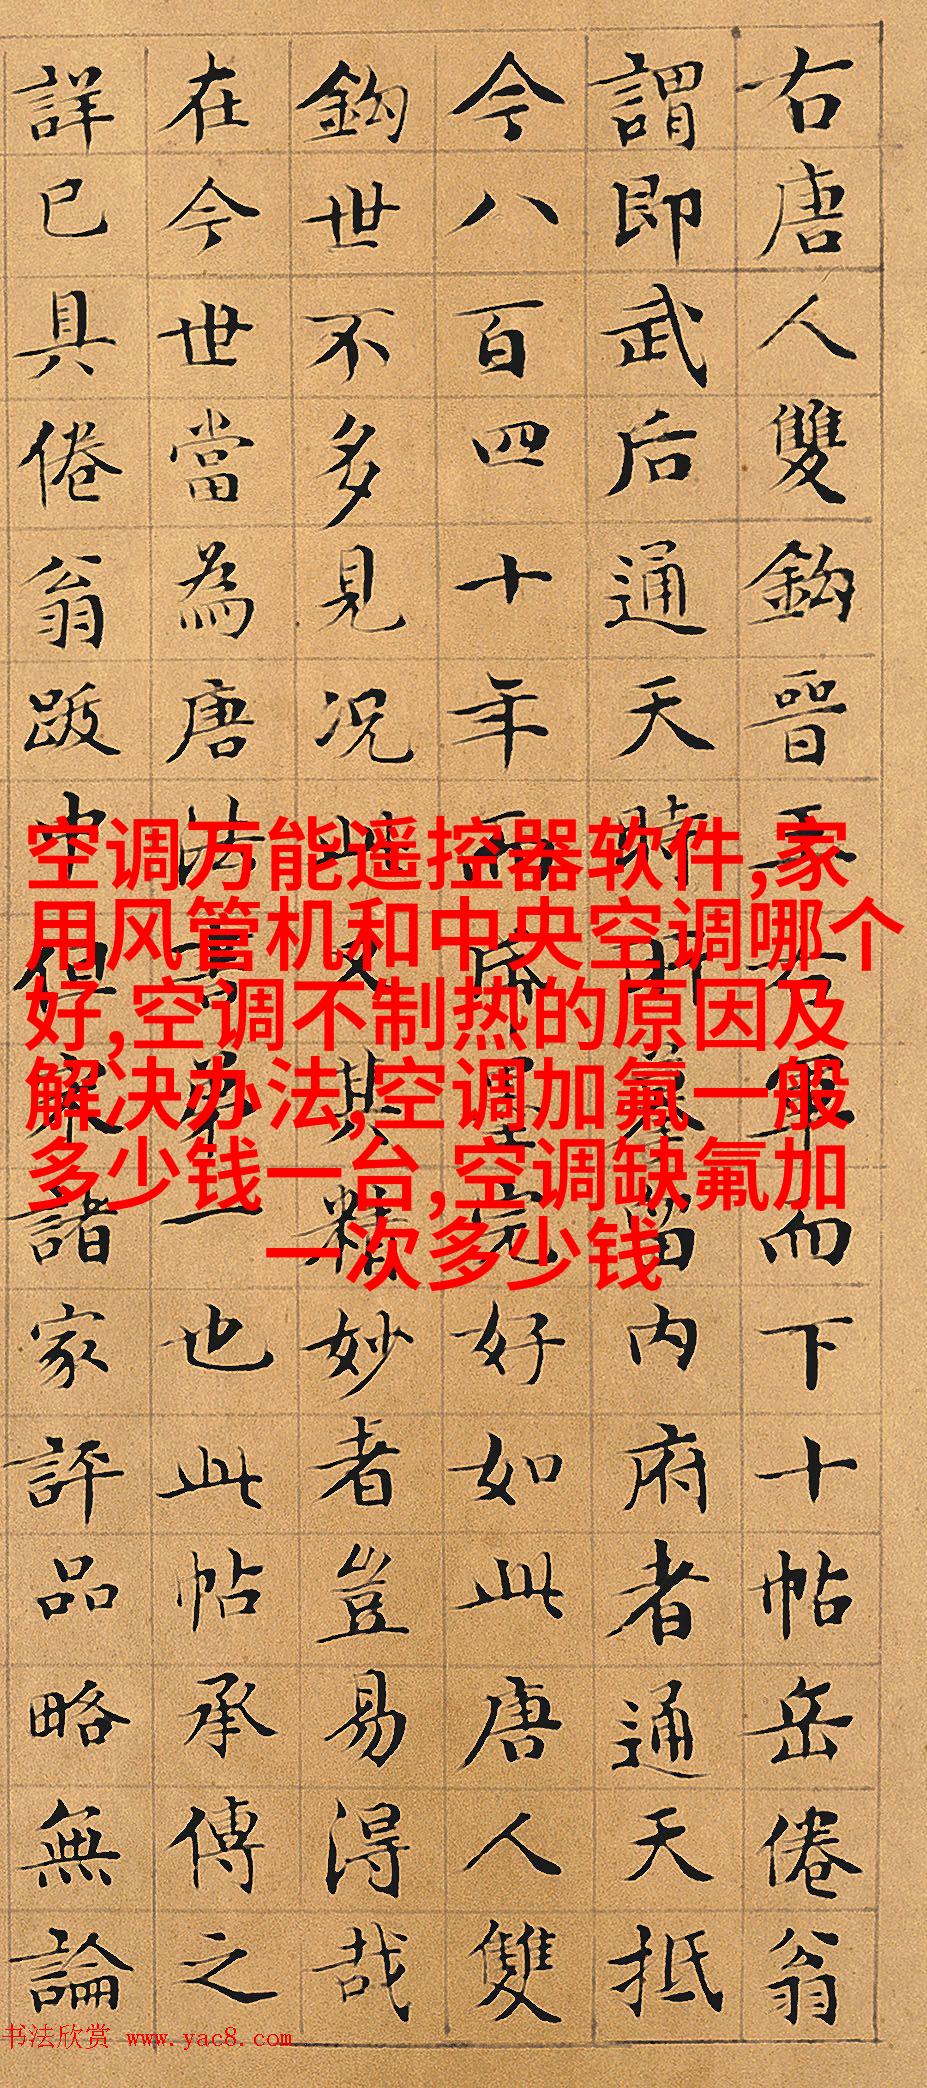 右唐人雙鈎晉王右軍而下十帖岳倦翁
謂即武后通天時所摹留內府者通天抵
今八百四十年而墨完好如此唐人雙
鈎世不多見況此又其精妙者豈易得哉
在今世當為唐法書第一也此帖承傳之
詳已具倦翁跋中但諸家評品略無論
空调万能遥控器软件,家
用风管机和中央空调哪个
好,空调不制热的原因及
解决办法,空调加氟一般
多少钱一台,空调缺氟加
一次多少钱
书法欣赏 www.yac8.com